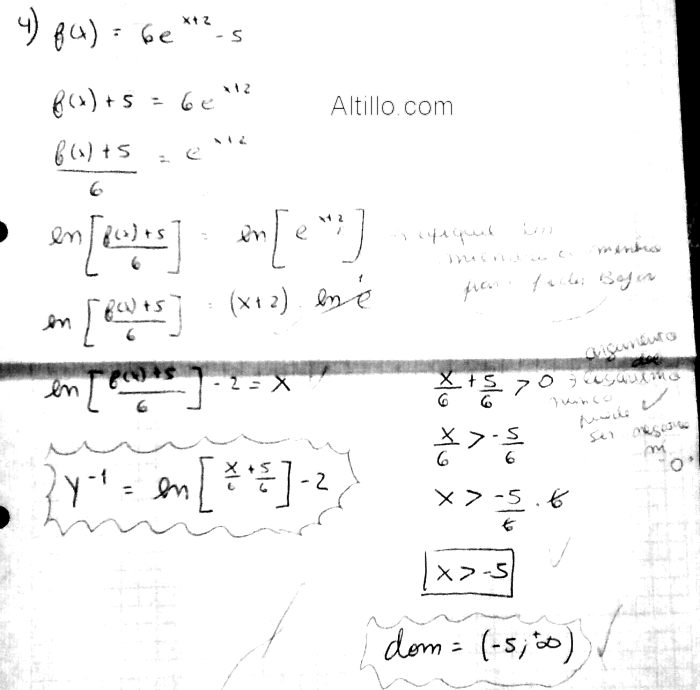 4) f(x) = 6e^(x+2) - 5
f(x) + 5 = 6e^(x+2)
Altillo.com
(f(x) + 5)/6 = e^(x+2)
ln[(f(x) + 5)/6] = ln[e^(x+2)]
miembro
para poder Bajar
ln[(f(x) + 5)/6] = (x+2) . ln e 1
ln[(f(x) + 5)/6] - 2 = x ✓
y^-1 = ln[x/6 + 5/6] - 2
x/6 + 5/6 > 0 → argumento del logaritmo
nunca puede
ser negativo
ni 0
x/6 > -5/6
x > -5/6 . 6
x > -5
dom = (-5; +∞) ✓